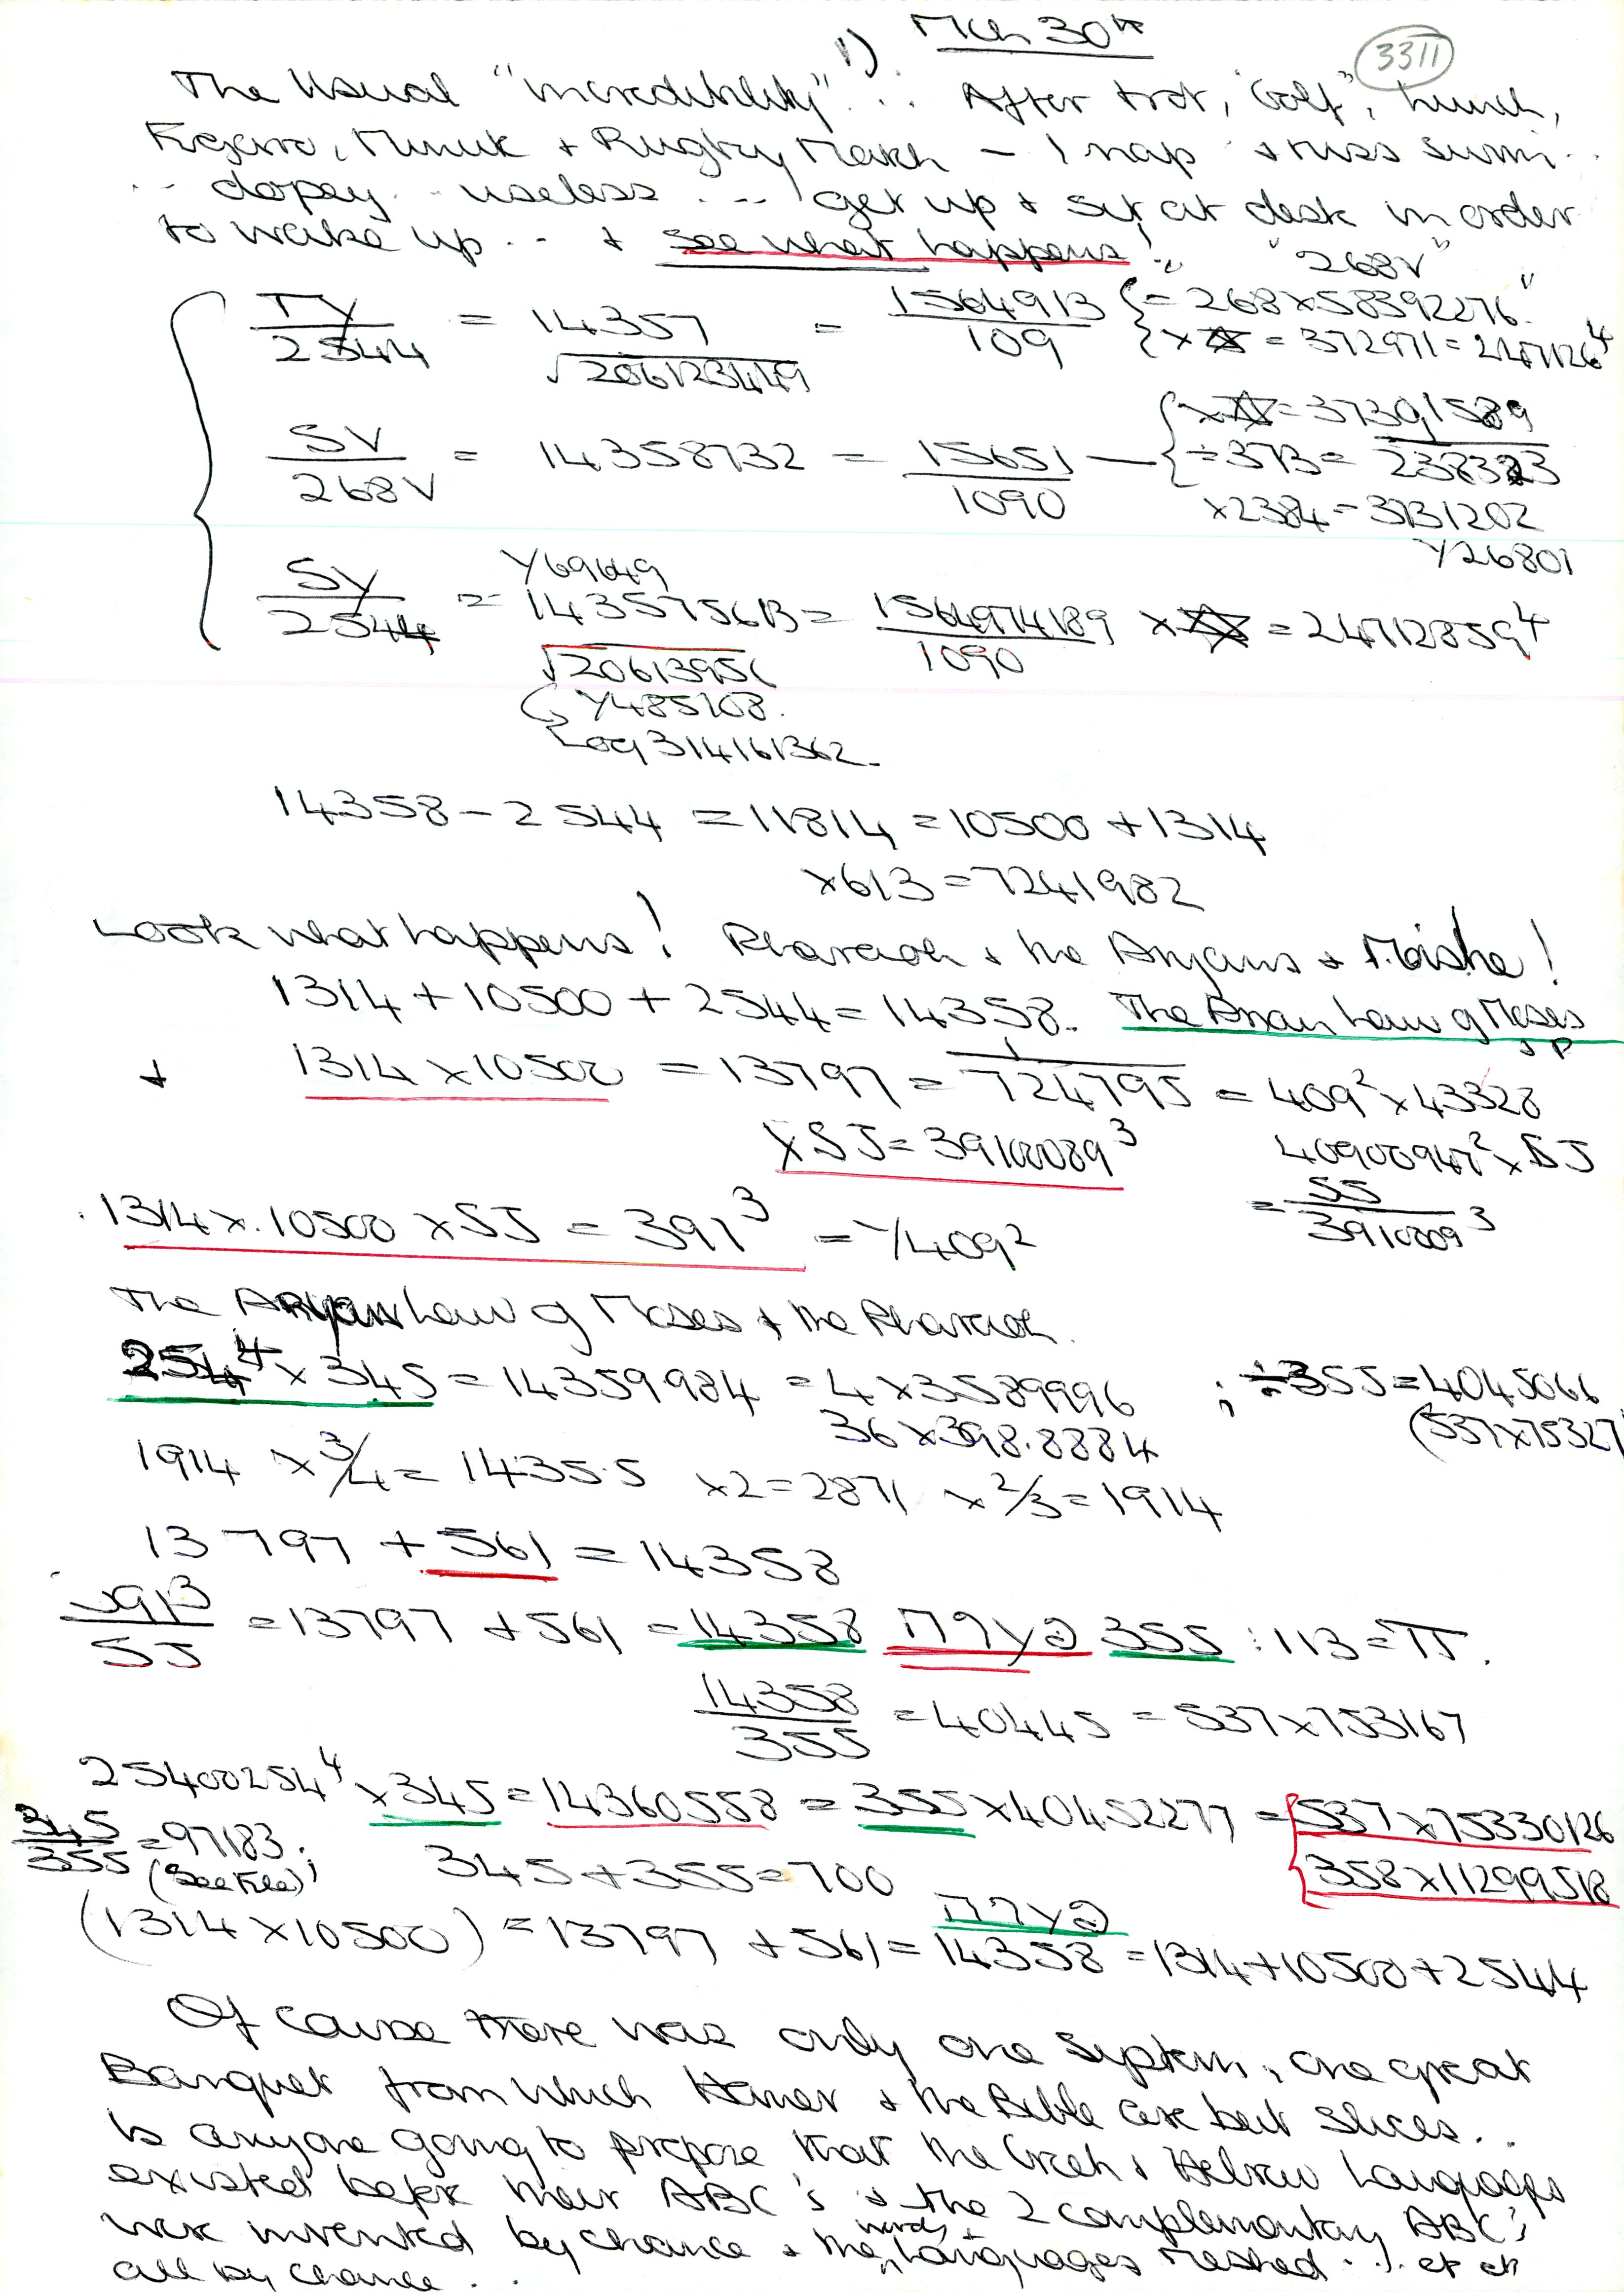 1) Mch 30th
3311
The Usual "incredibility"... After trot, "Golf", Lunch,
Figaro, Munuk + Rugby Match - I nap + miss swim..
.. dopey.. useless ... get up + sit at desk in order
to wake up... + see what happens!
"268V"
TY/2544 = 14357 = 1564913/109 { = 268 x 58392276"
√206123449 { x = 372971 = 2471264
SV/268V = 14358732 = 15651/1090 — { x = 37391589
÷ 373 = 238323
x 2384 = 3731202
Y26801
Y69649
SY/2544 = 143575613 = 1564974189/1090 x = 247128594
√20613956
Y485108.
Log 314161362.
14358 - 2544 = 11814 = 10500 + 1314
x 613 = 7241982
Look what happens! Pharaoh + the Aryans + Moishe!
1314 + 10500 + 2544 = 14358. The Aryan Law of Moses
+ P
+ 1314 x 10500 = 13797 = 1/724795 = 409² x 43328
x SJ = 39100089³ 40900947² x SJ
= SS/3910009³
1314 x 10500 x SJ = 391³ = Y409²
The Aryan Law of Moses + the Pharaoh.
254⁴ x 345 = 14359984 = 4 x 3589996 ; ÷ 355 = 4045066
36 x 398.8884 (537 x 75327
1914 x 3/4 = 14355 x 2 = 2871 x 2/3 = 1914
13797 + 561 = 14358
391³/SJ = 13797 + 561 = 14358 355 : 113 = π.
14358/355 = 40445 = 537 x 753167
25400254⁴ x 345 = 14360558 = 355 x 40452277 = { 537 x 75330126
345/355 = 97183; (See File) 345 + 355 = 700 { 358 x 11299518
(1314 x 10500) = 13797 + 561 = 14358 = 1314 + 10500 + 2544
Of cause there was only one system, one great
Banquet from which Homer + the Bible are but slices..
Is anyone going to propose that the Greek + Hebrew Languages
existed before their ABC's + the 2 complementary ABC's
were invented by chance + the words + Languages meshed... et et
all by chance...